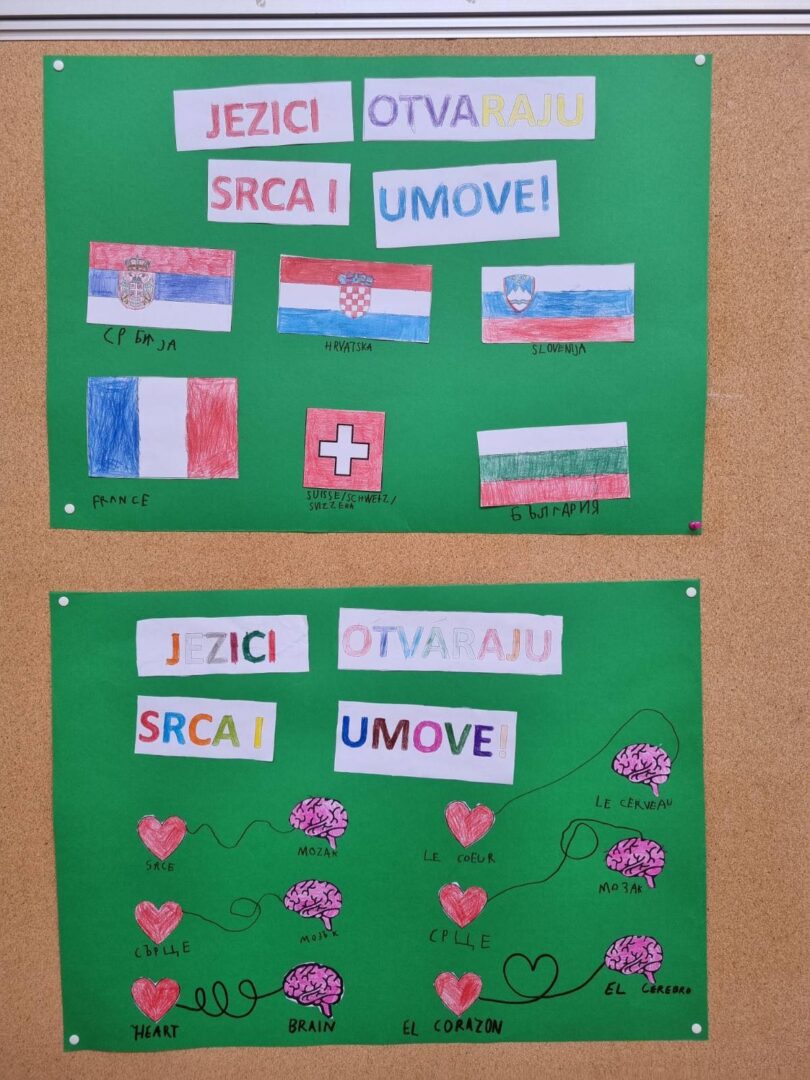 JEZICI OTVARAJU
SRCA I UMOVE!
СРБИЈА HRVATSKA SLOVENIJA
FRANCE SUISSE/SCHWEIZ/ БЪЛГАРИЯ
SVIZZERA
JEZICI OTVARAJU
SRCA I UMOVE!
SRCE MOZAK LE COEUR LE CERVEAU
СЪРЦЕ МОЗЪК СРЦЕ МОЗАК
HEART BRAIN EL CORAZON EL CEREBRO